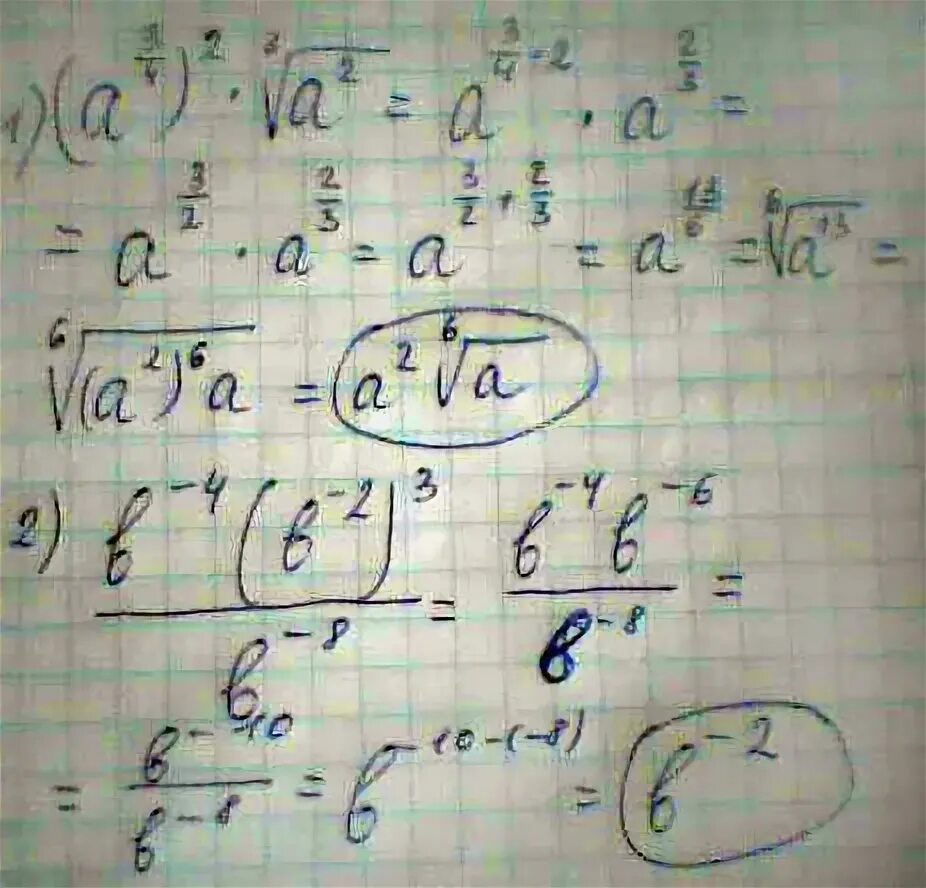 1) (a^{3/4})^2 · ∛(a^2) = a^{3/4 · 2} · a^{2/3} =
= a^{3/2} · a^{2/3} = a^{3/2 + 2/3} = a^{13/6} = ⁶√(a^{13}) =
⁶√((a^2)^6 a) = a^2 ⁶√a
2) (в^{-4} (в^{-2})^3) / в^{-8} = (в^{-4} в^{-6}) / в^{-8} =
= в^{-10} / в^{-8} = в^{-10-(-8)} = в^{-2}